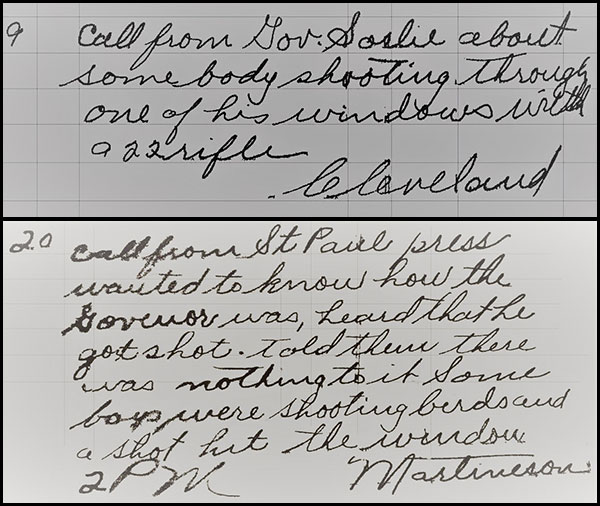 9 Call from Gov. Sorlie about
somebody shooting through
one of his windows with
a 22 rifle
Cleveland
20 Call from St Paul press
wanted to know how the
Govenor was, heard that he
got shot. told them there
was nothing to it Some
boys were shooting berds and
a shot hit the window
2 PM Martineson